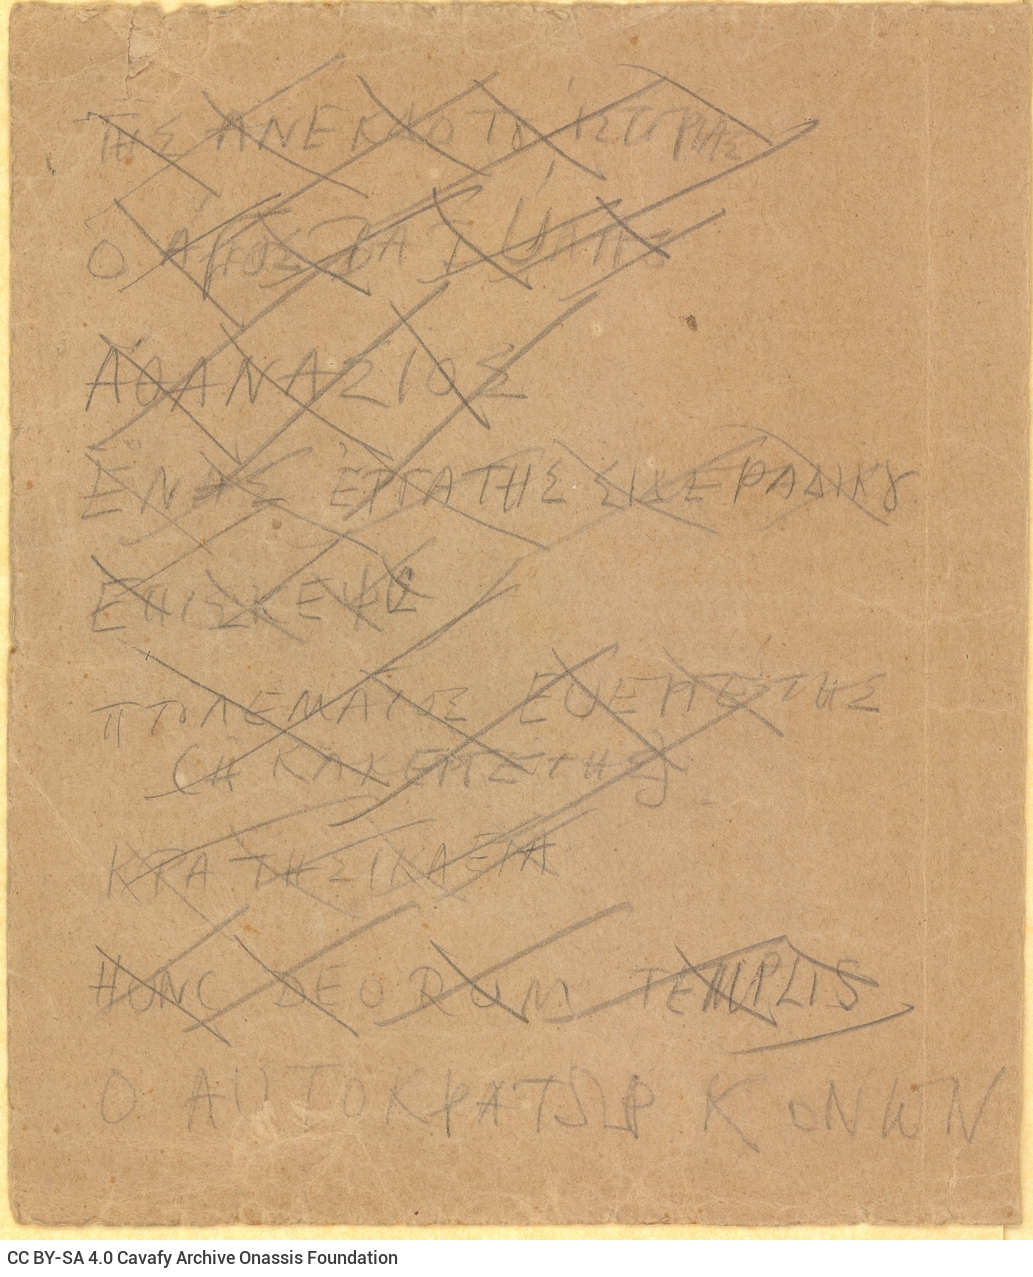 ΤΗΣ ἈΝΕΚΔΟΤȣ ἹΣΤΟΡΙΑΣ
Ο ΑΓΙΟΣ
ἈΘΑΝΑΣΙΟΣ
ἙΝΑΣ ἘΡΓΑΤΗΣ ΣΙΔΕΡΑΔΙΚȣ
ΠΤΟΛΕΜΑΙΟΣ ΕΥΕΡΓΕΤΗΣ
(Ἢ ΚΑΚΕΡΓΕΤΗΣ)
ΚΡΑΤΗΣΙΚΛΕΙΑ
HUNC DEORUM TEMPLIS
Ο ΑΥΤΟΚΡΑΤΩΡ ΚΟΝΩΝ
CC BY-SA 4.0 Cavafy Archive Onassis Foundation